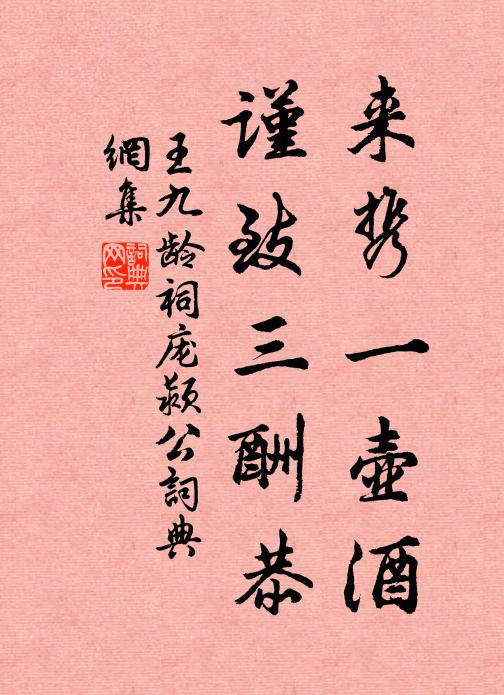 来携一壶酒
谨致三酬恭
王九龄祠庞颍公詞典
網集
詞典
网印